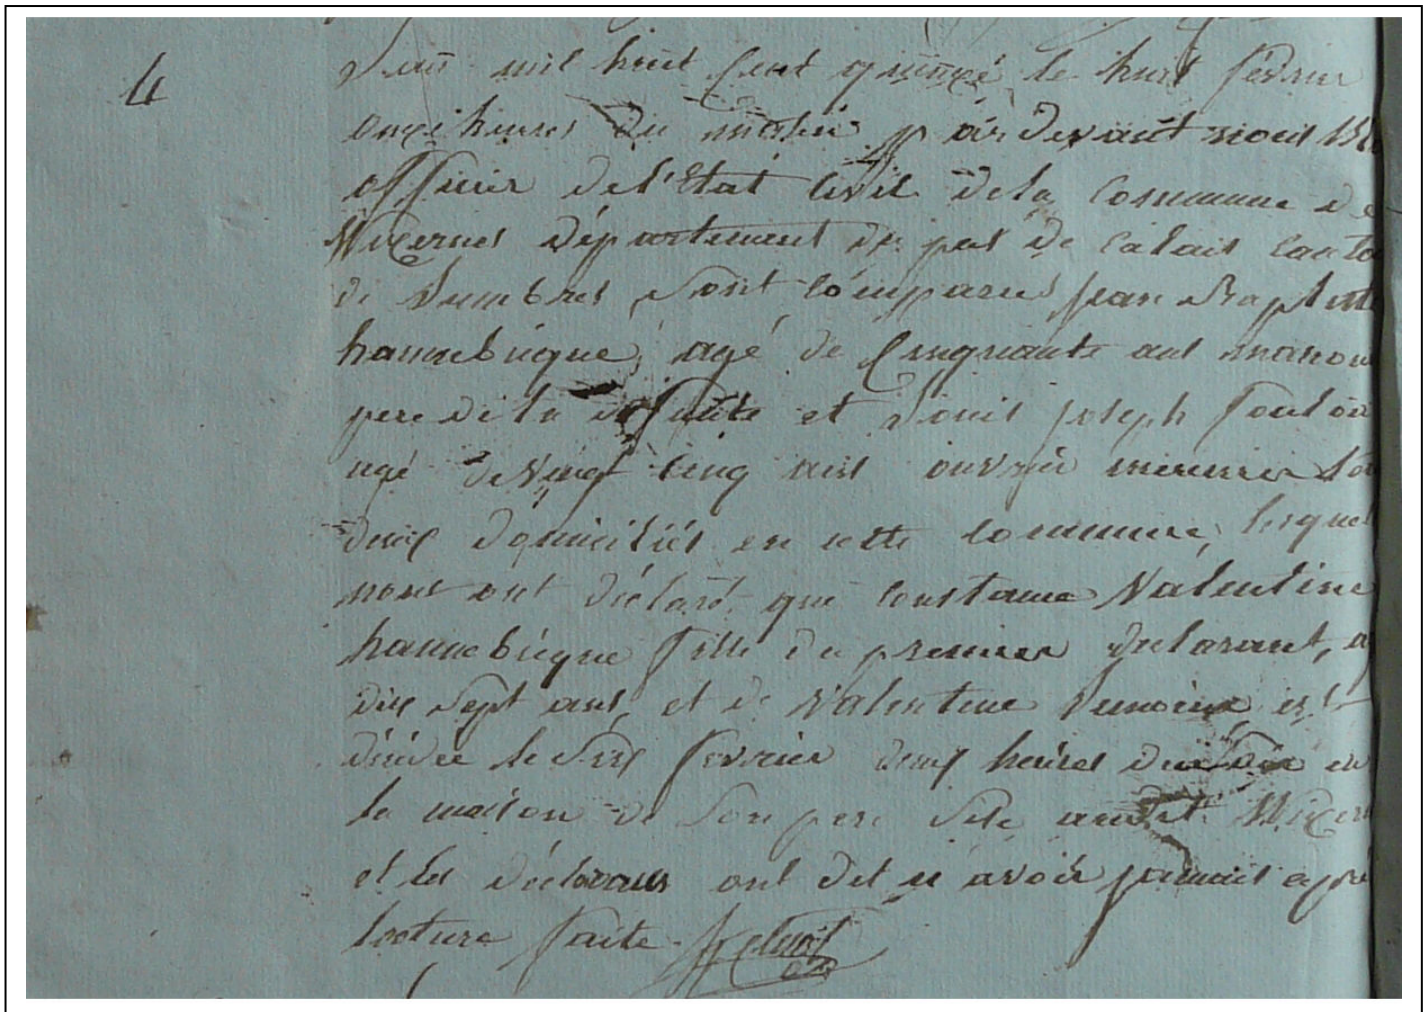 4
L'an mil huit cent quinze le huit février
onze heures du matin par devant nous
officier de l'Etat civil de la commune de
Wizernes département du pas de Calais canto
de Lumbres, sont comparus jean Baptiste
hannebicque, agé de cinquante ans manou
pere de la défunte et Louis joseph
agé de vingt cinq ans ouvrier
deux domiciliés en cette commune, lesquel
nous ont déclaré que Constance Valentine
hannebicque fille du premier declarant, a
dix sept ans, et de Valentine est
décédée le Six fevrier deux heures du en
la maison de son pere Site audit Wizern
et les déclarans ont dit n avoir jamais
lecture faite